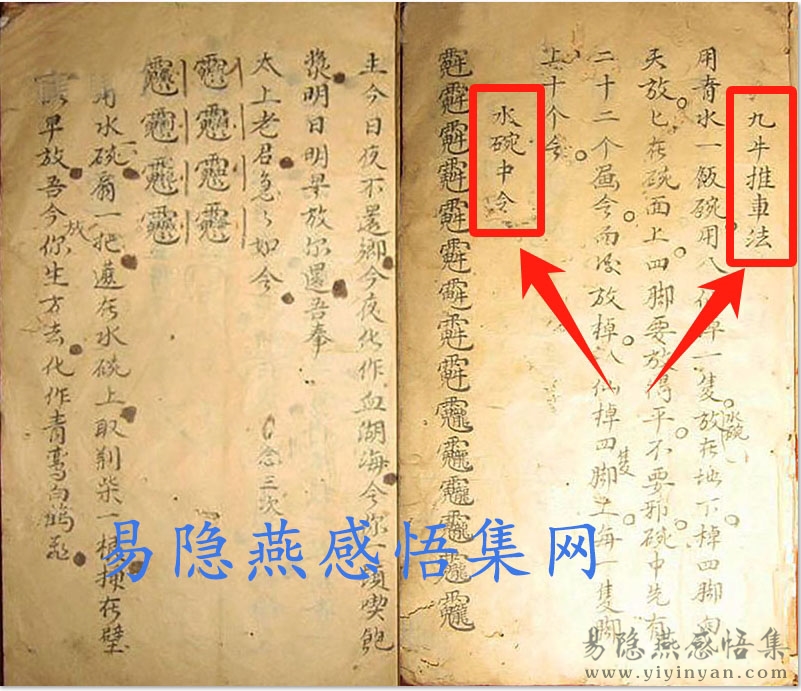 九牛推車法
用青水一飯碗用八仙早一隻放在地下掉四脚向
水碗
天放匕在碗面上四脚要放得平不要邪碗中先有
二十二个令而後放掉八仙掉四脚上每一隻脚
隻
上十个令
水碗中令
土今日夜不還鄉今夜化作血湖海今你一頭喫飽
漿明日明早放尔還吾奉
太上老君急々如令
念三次
用水碗扇一把蓋在水碗上取荆柴一根揀在壁
早放吾今你生方去化作青鸞白鶴飛
放
易隐燕感悟集网
易隐燕感悟集
www.yiyinyan.com